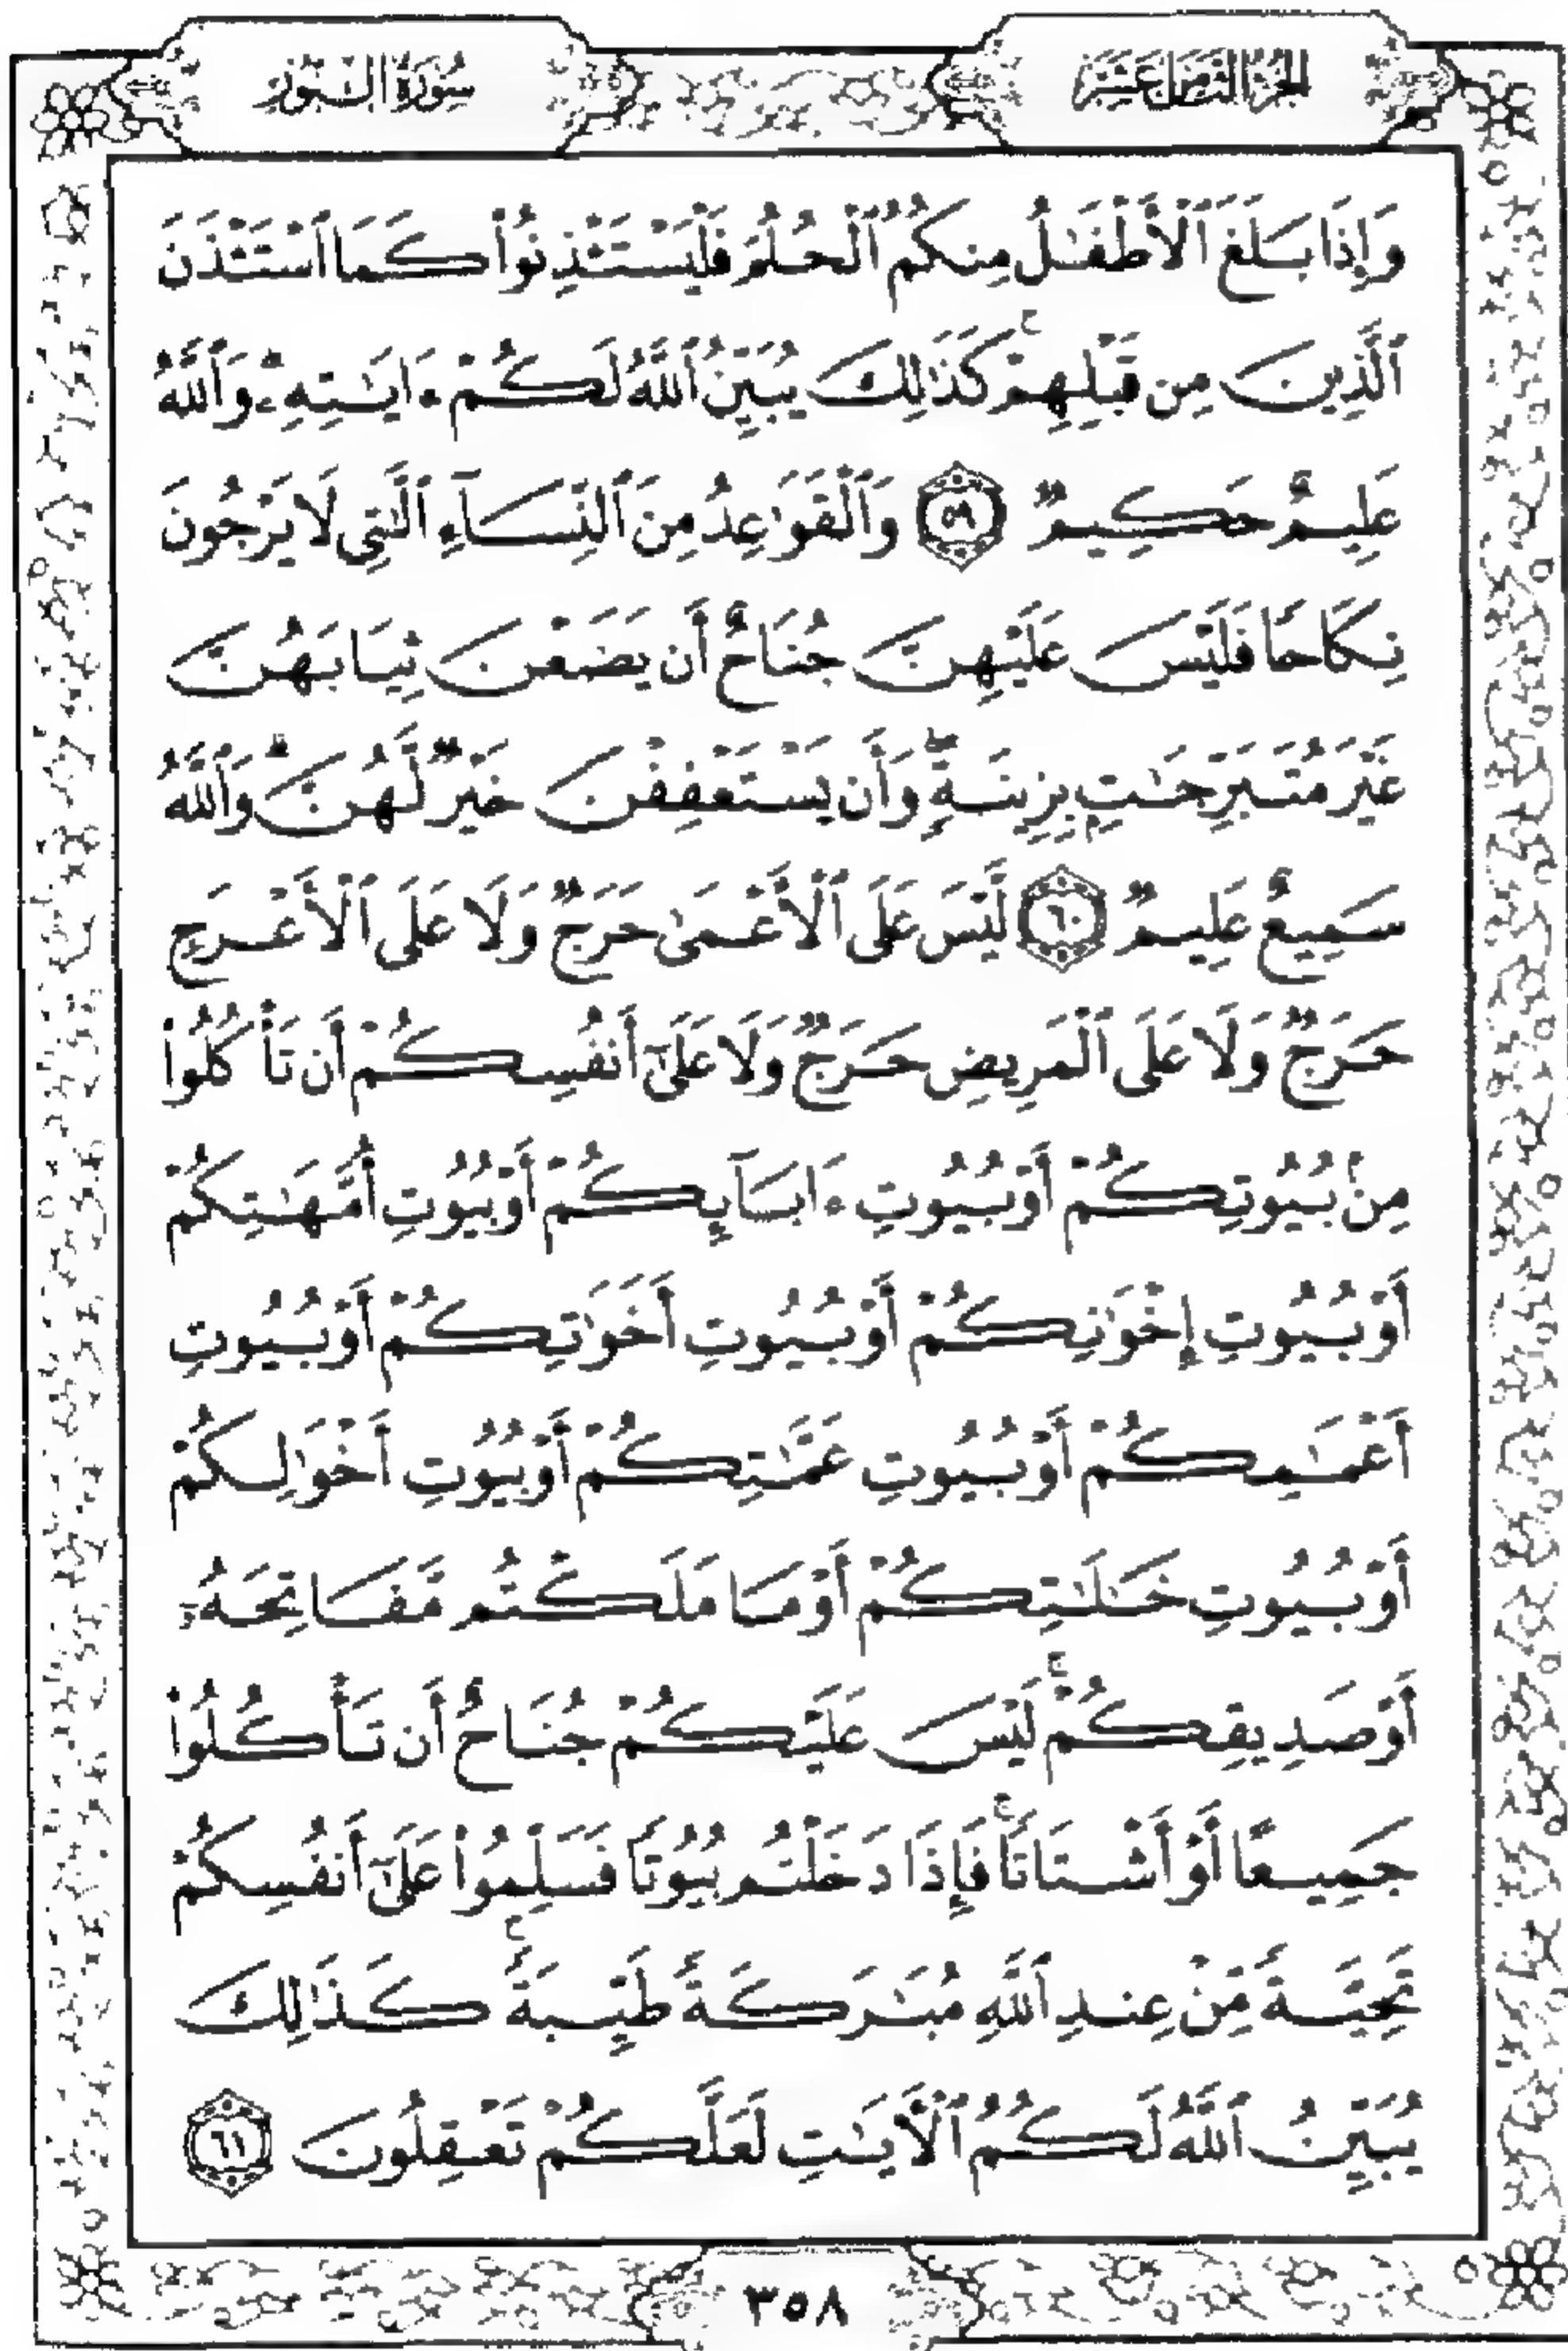 الجزء الثامن عشر
سورة النور
وَإِذَا بَلَغَ ٱلْأَطْفَٰلُ مِنكُمُ ٱلْحُلُمَ فَلْيَسْتَـْٔذِنُوا۟ كَمَا ٱسْتَـْٔذَنَ
ٱلَّذِينَ مِن قَبْلِهِمْ ۚ كَذَٰلِكَ يُبَيِّنُ ٱللَّهُ لَكُمْ ءَايَٰتِهِۦ ۗ وَٱللَّهُ
عَلِيمٌ حَكِيمٌ ٥٩ وَٱلْقَوَٰعِدُ مِنَ ٱلنِّسَآءِ ٱلَّٰتِى لَا يَرْجُونَ
نِكَاحًا فَلَيْسَ عَلَيْهِنَّ جُنَاحٌ أَن يَضَعْنَ ثِيَابَهُنَّ
غَيْرَ مُتَبَرِّجَٰتٍۭ بِزِينَةٍ ۖ وَأَن يَسْتَعْفِفْنَ خَيْرٌ لَّهُنَّ ۗ وَٱللَّهُ
سَمِيعٌ عَلِيمٌ ٦٠ لَّيْسَ عَلَى ٱلْأَعْمَىٰ حَرَجٌ وَلَا عَلَى ٱلْأَعْرَجِ
حَرَجٌ وَلَا عَلَى ٱلْمَرِيضِ حَرَجٌ وَلَا عَلَىٰٓ أَنفُسِكُمْ أَن تَأْكُلُوا۟
مِنۢ بُيُوتِكُمْ أَوْ بُيُوتِ ءَابَآئِكُمْ أَوْ بُيُوتِ أُمَّهَٰتِكُمْ
أَوْ بُيُوتِ إِخْوَٰنِكُمْ أَوْ بُيُوتِ أَخَوَٰتِكُمْ أَوْ بُيُوتِ
أَعْمَٰمِكُمْ أَوْ بُيُوتِ عَمَّٰتِكُمْ أَوْ بُيُوتِ أَخْوَٰلِكُمْ
أَوْ بُيُوتِ خَٰلَٰتِكُمْ أَوْ مَا مَلَكْتُم مَّفَاتِحَهُۥٓ
أَوْ صَدِيقِكُمْ ۚ لَيْسَ عَلَيْكُمْ جُنَاحٌ أَن تَأْكُلُوا۟
جَمِيعًا أَوْ أَشْتَاتًا ۚ فَإِذَا دَخَلْتُم بُيُوتًا فَسَلِّمُوا۟ عَلَىٰٓ أَنفُسِكُمْ
تَحِيَّةً مِّنْ عِندِ ٱللَّهِ مُبَٰرَكَةً طَيِّبَةً ۚ كَذَٰلِكَ
يُبَيِّنُ ٱللَّهُ لَكُمُ ٱلْأَيَٰتِ لَعَلَّكُمْ تَعْقِلُونَ ٦١
٣٥٨